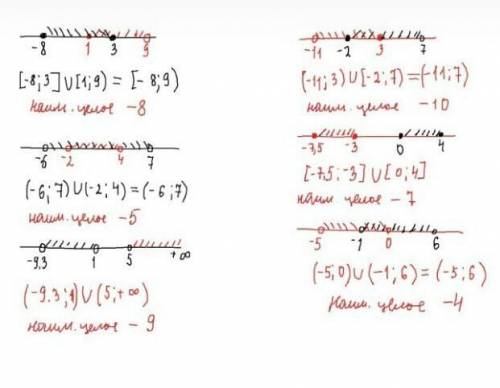 -8 1 3 9
[-8;3]∪[1;9)=[-8;9)
наим.целое -8
-6 -2 4 7
(-6;7)∪(-2;4)=(-6;7)
наим.целое -5
-9.3 1 5 +∞
(-9.3;1)∪(5;+∞)
наим.целое -9
-11 -2 3 7
(-11;3)∪[-2;7)=(-11;7)
наим.целое -10
-7,5 -3 0 4
[-7,5;-3]∪[0;4]
наим.целое -7
-5 -1 0 6
(-5;0)∪(-1;6)=(-5;6)
наим.целое -4